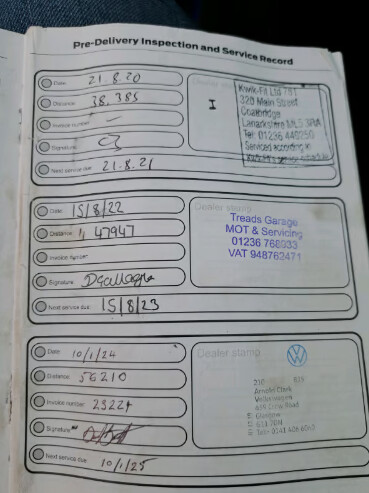 Pre-Delivery Inspection and Service Record
Date: 21.8.20
Distance: 38.385
Invoice number: –
Signature:
Next service due: 21.8.21
I
Kwik-Fit Ltd
320 Main Street
Coatbridge
Lanarkshire ML5 3RA
Tel: 01236 449250
Serviced according to
Date: 15/8/22
Distance: 47947
Invoice number:
Signature:
Next service due: 15/8/23
Dealer stamp
Treads Garage
MOT & Servicing
01236 768033
VAT 948762471
Date: 10/1/24
Distance: 56210
Invoice number:
Signature:
Next service due: 10/1/25
Dealer stamp
Arnold Clark
Volkswagen
Glasgow